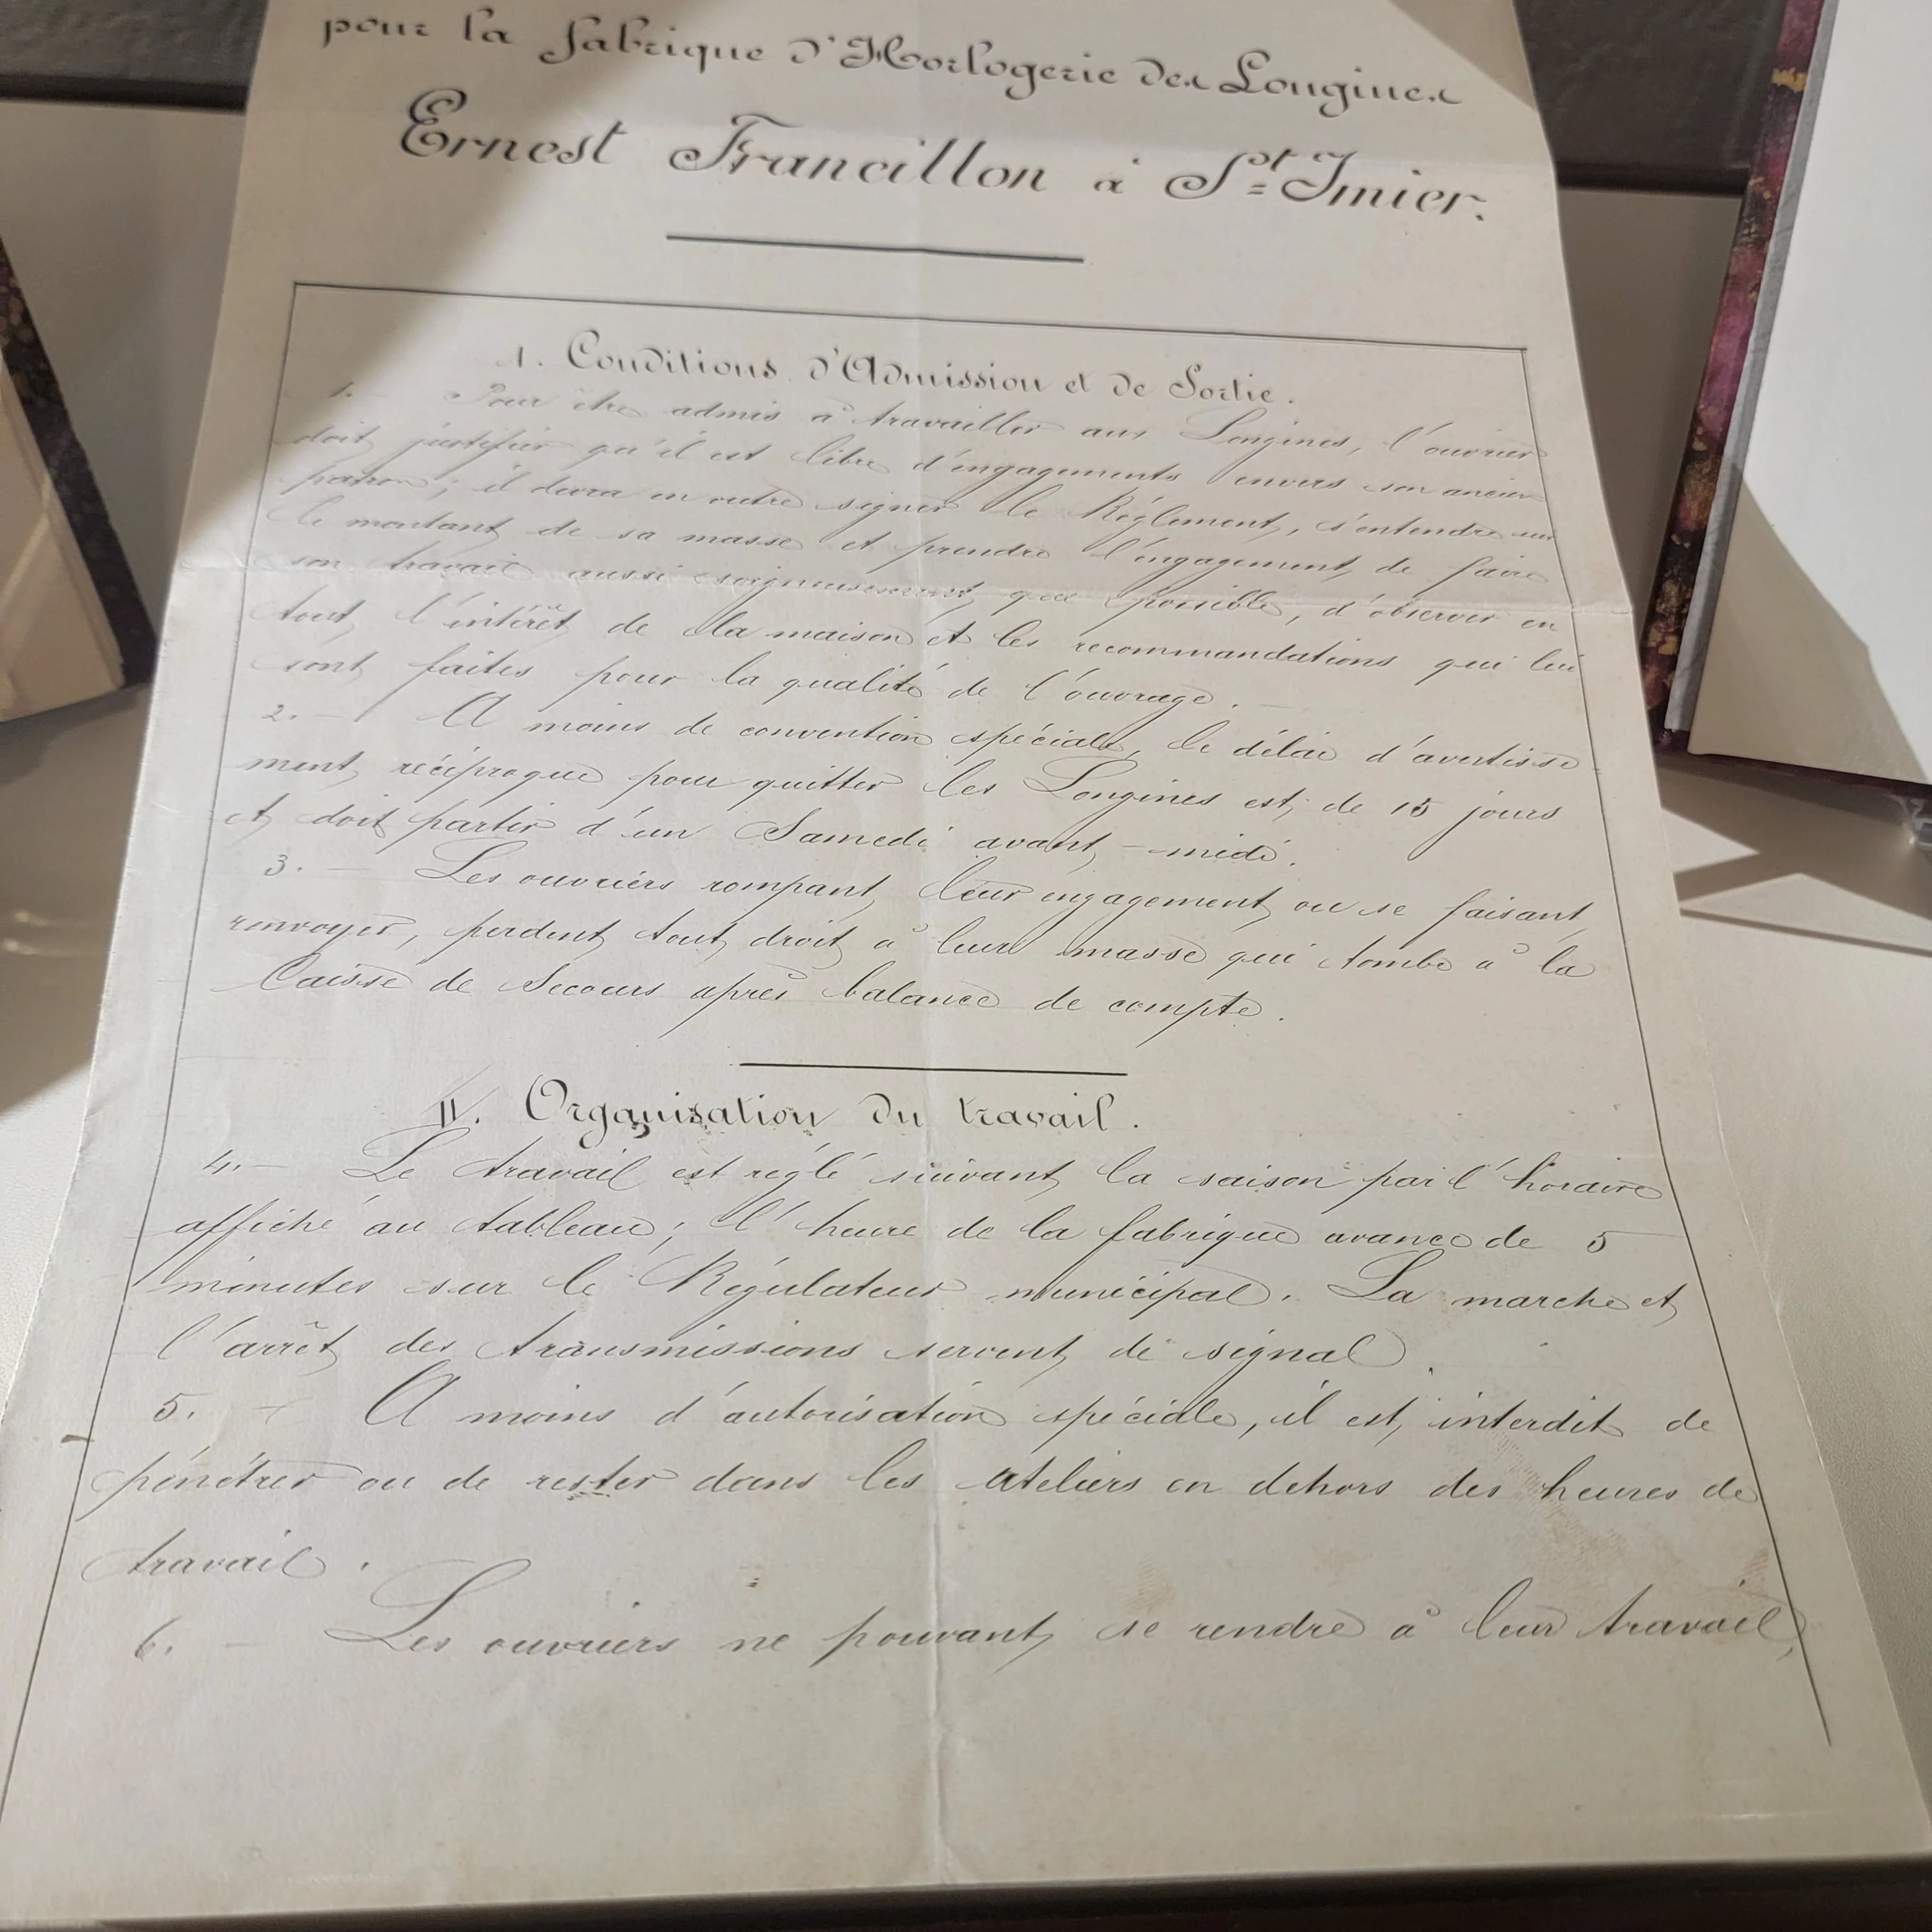 pour la fabrique d'Horlogerie des Longines
Ernest Francillon à St Imier.
1. Conditions d'Admission et de Sortie.
1. – Pour être admis à travailler aux Longines, l'ouvrier
doit justifier qu'il est libre d'engagements envers son ancien
patron; il devra en outre signer le Réglement, s'entendre sur
le montant de sa masse et prendre l'engagement de faire
son travail aussi soigneusement que possible, d'observer en
tout l'intérêt de la maison et les recommandations qui lui
sont faites pour la qualité de l'ouvrage.
2. – A moins de convention spéciale, le délai d'avertisse-
ment réciproque pour quitter les Longines est de 15 jours
et doit partir d'un Samedi avant-midi.
3. – Les ouvriers rompant leur engagement ou se faisant
renvoyer, perdent tout droit à leur masse qui tombe à la
Caisse de Secours après balance de compte.
II. Organisation du travail.
4. – Le travail est réglé suivant la saison par l'horaire
affiché au tableau; l'heure de la fabrique avance de 5
minutes sur le Régulateur municipal. La marche et
l'arrêt des transmissions servent de signal.
5. – A moins d'autorisation spéciale, il est interdit de
pénétrer ou de rester dans les ateliers en dehors des heures de
travail.
6. – Les ouvriers ne pouvant se rendre à leur travail,